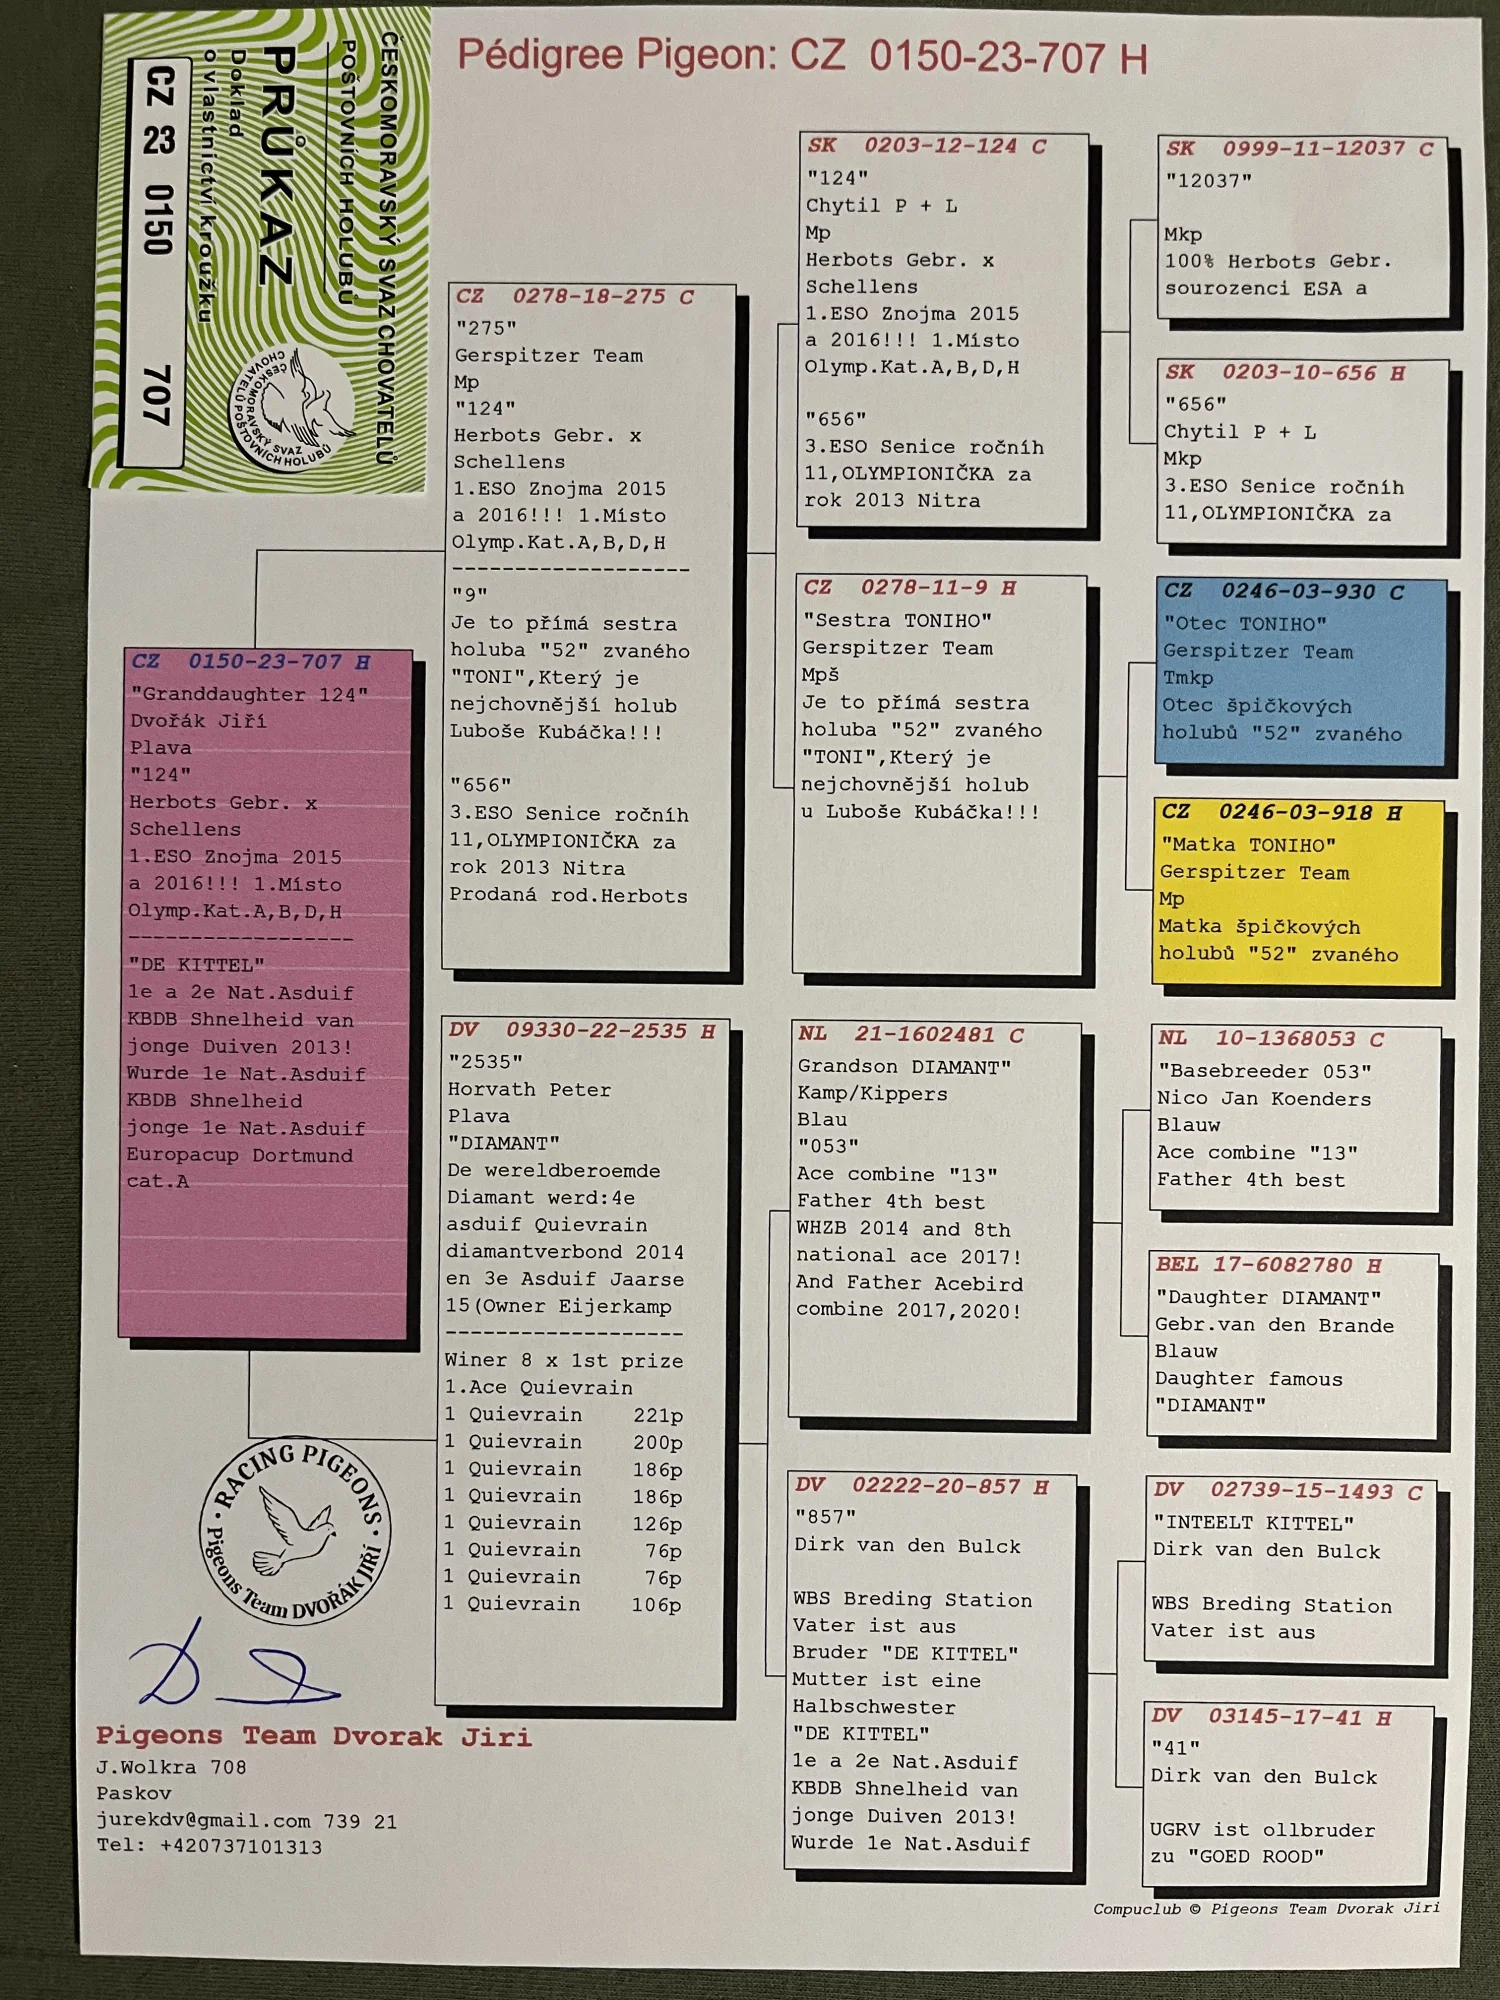 Pédigree Pigeon: CZ 0150-23-707 H
ČESKOMORAVSKÝ SVAZ CHOVATELŮ
POŠTOVNÍCH HOLUBŮ
PRŮKAZ
Doklad
o vlastnictví kroužku
CZ 23 0150 707
ČESKOMORAVSKÝ SVAZ
CHOVATELŮ POŠTOVNÍCH HOLUBŮ
CZ 0150-23-707 H
"Granddaughter 124"
Dvořák Jiří
Plava
"124"
Herbots Gebr. x
Schellens
1.ESO Znojma 2015
a 2016!!! 1.Místo
Olymp.Kat.A,B,D,H
------------------
"DE KITTEL"
1e a 2e Nat.Asduif
KBDB Shnelheid van
jonge Duiven 2013!
Wurde 1e Nat.Asduif
KBDB Shnelheid
jonge 1e Nat.Asduif
Europacup Dortmund
cat.A
CZ 0278-18-275 C
"275"
Gerspitzer Team
Mp
"124"
Herbots Gebr. x
Schellens
1.ESO Znojma 2015
a 2016!!! 1.Místo
Olymp.Kat.A,B,D,H
-------------------
"9"
Je to přímá sestra
holuba "52" zvaného
"TONI",Který je
nejchovnější holub
Luboše Kubáčka!!!
"656"
3.ESO Senice ročníh
11,OLYMPIONIČKA za
rok 2013 Nitra
Prodaná rod.Herbots
DV 09330-22-2535 H
"2535"
Horvath Peter
Plava
"DIAMANT"
De wereldberoemde
Diamant werd:4e
asduif Quievrain
diamantverbond 2014
en 3e Asduif Jaarse
15(Owner Eijerkamp
-------------------
Winer 8 x 1st prize
1.Ace Quievrain
1 Quievrain 221p
1 Quievrain 200p
1 Quievrain 186p
1 Quievrain 186p
1 Quievrain 126p
1 Quievrain 76p
1 Quievrain 76p
1 Quievrain 106p
SK 0203-12-124 C
"124"
Chytil P + L
Mp
Herbots Gebr. x
Schellens
1.ESO Znojma 2015
a 2016!!! 1.Místo
Olymp.Kat.A,B,D,H
"656"
3.ESO Senice ročníh
11,OLYMPIONIČKA za
rok 2013 Nitra
CZ 0278-11-9 H
"Sestra TONIHO"
Gerspitzer Team
Mpš
Je to přímá sestra
holuba "52" zvaného
"TONI",Který je
nejchovnější holub
u Luboše Kubáčka!!!
NL 21-1602481 C
Grandson DIAMANT"
Kamp/Kippers
Blau
"053"
Ace combine "13"
Father 4th best
WHZB 2014 and 8th
national ace 2017!
And Father Acebird
combine 2017,2020!
DV 02222-20-857 H
"857"
Dirk van den Bulck
WBS Breding Station
Vater ist aus
Bruder "DE KITTEL"
Mutter ist eine
Halbschwester
"DE KITTEL"
1e a 2e Nat.Asduif
KBDB Shnelheid van
jonge Duiven 2013!
Wurde 1e Nat.Asduif
SK 0999-11-12037 C
"12037"
Mkp
100% Herbots Gebr.
sourozenci ESA a
SK 0203-10-656 H
"656"
Chytil P + L
Mkp
3.ESO Senice ročníh
11,OLYMPIONIČKA za
CZ 0246-03-930 C
"Otec TONIHO"
Gerspitzer Team
Tmkp
Otec špičkových
holubů "52" zvaného
CZ 0246-03-918 H
"Matka TONIHO"
Gerspitzer Team
Mp
Matka špičkových
holubů "52" zvaného
NL 10-1368053 C
"Basebreeder 053"
Nico Jan Koenders
Blauw
Ace combine "13"
Father 4th best
BEL 17-6082780 H
"Daughter DIAMANT"
Gebr.van den Brande
Blauw
Daughter famous
"DIAMANT"
DV 02739-15-1493 C
"INTEELT KITTEL"
Dirk van den Bulck
WBS Breding Station
Vater ist aus
DV 03145-17-41 H
"41"
Dirk van den Bulck
UGRV ist ollbruder
zu "GOED ROOD"
RACING PIGEONS
Pigeons Team DVOŘÁK JIŘÍ
Pigeons Team Dvorak Jiri
J.Wolkra 708
Paskov
jurekdv@gmail.com 739 21
Tel: +420737101313
Compuclub © Pigeons Team Dvorak Jiri